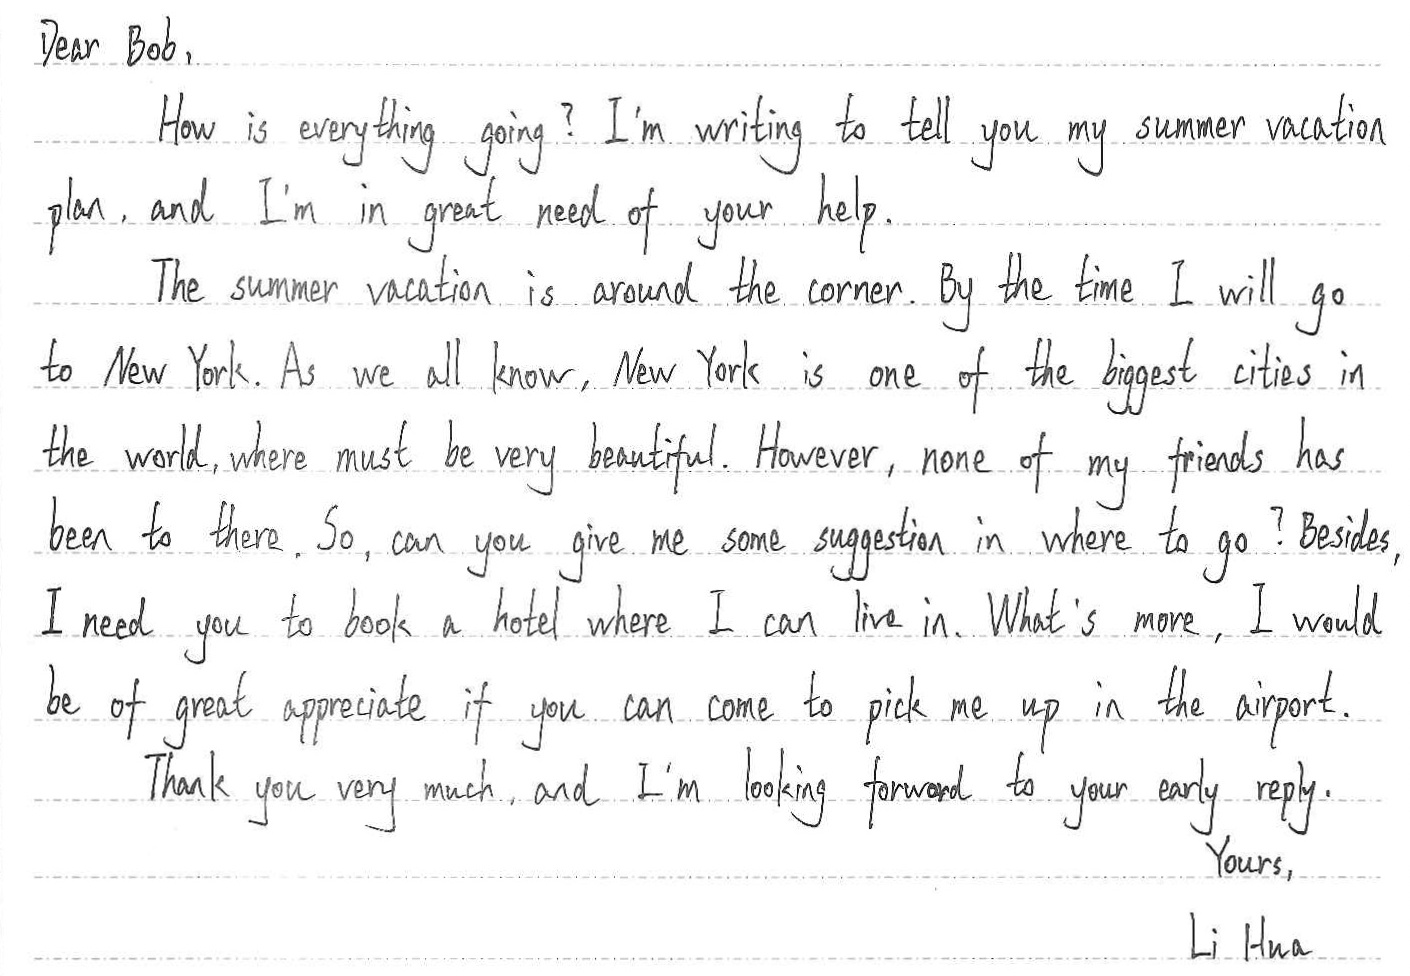 Dear Bob,
How is everything going? I'm writing to tell you my summer vacation
plan, and I'm in great need of your help.
The summer vacation is around the corner. By the time I will go
to New York. As we all know, New York is one of the biggest cities in
the world, where must be very beautiful. However, none of my friends has
been to there. So, can you give me some suggestion in where to go? Besides,
I need you to book a hotel where I can live in. What's more, I would
be of great appreciate if you can come to pick me up in the airport.
Thank you very much, and I'm looking forward to your early reply.
Yours,
Li Hua